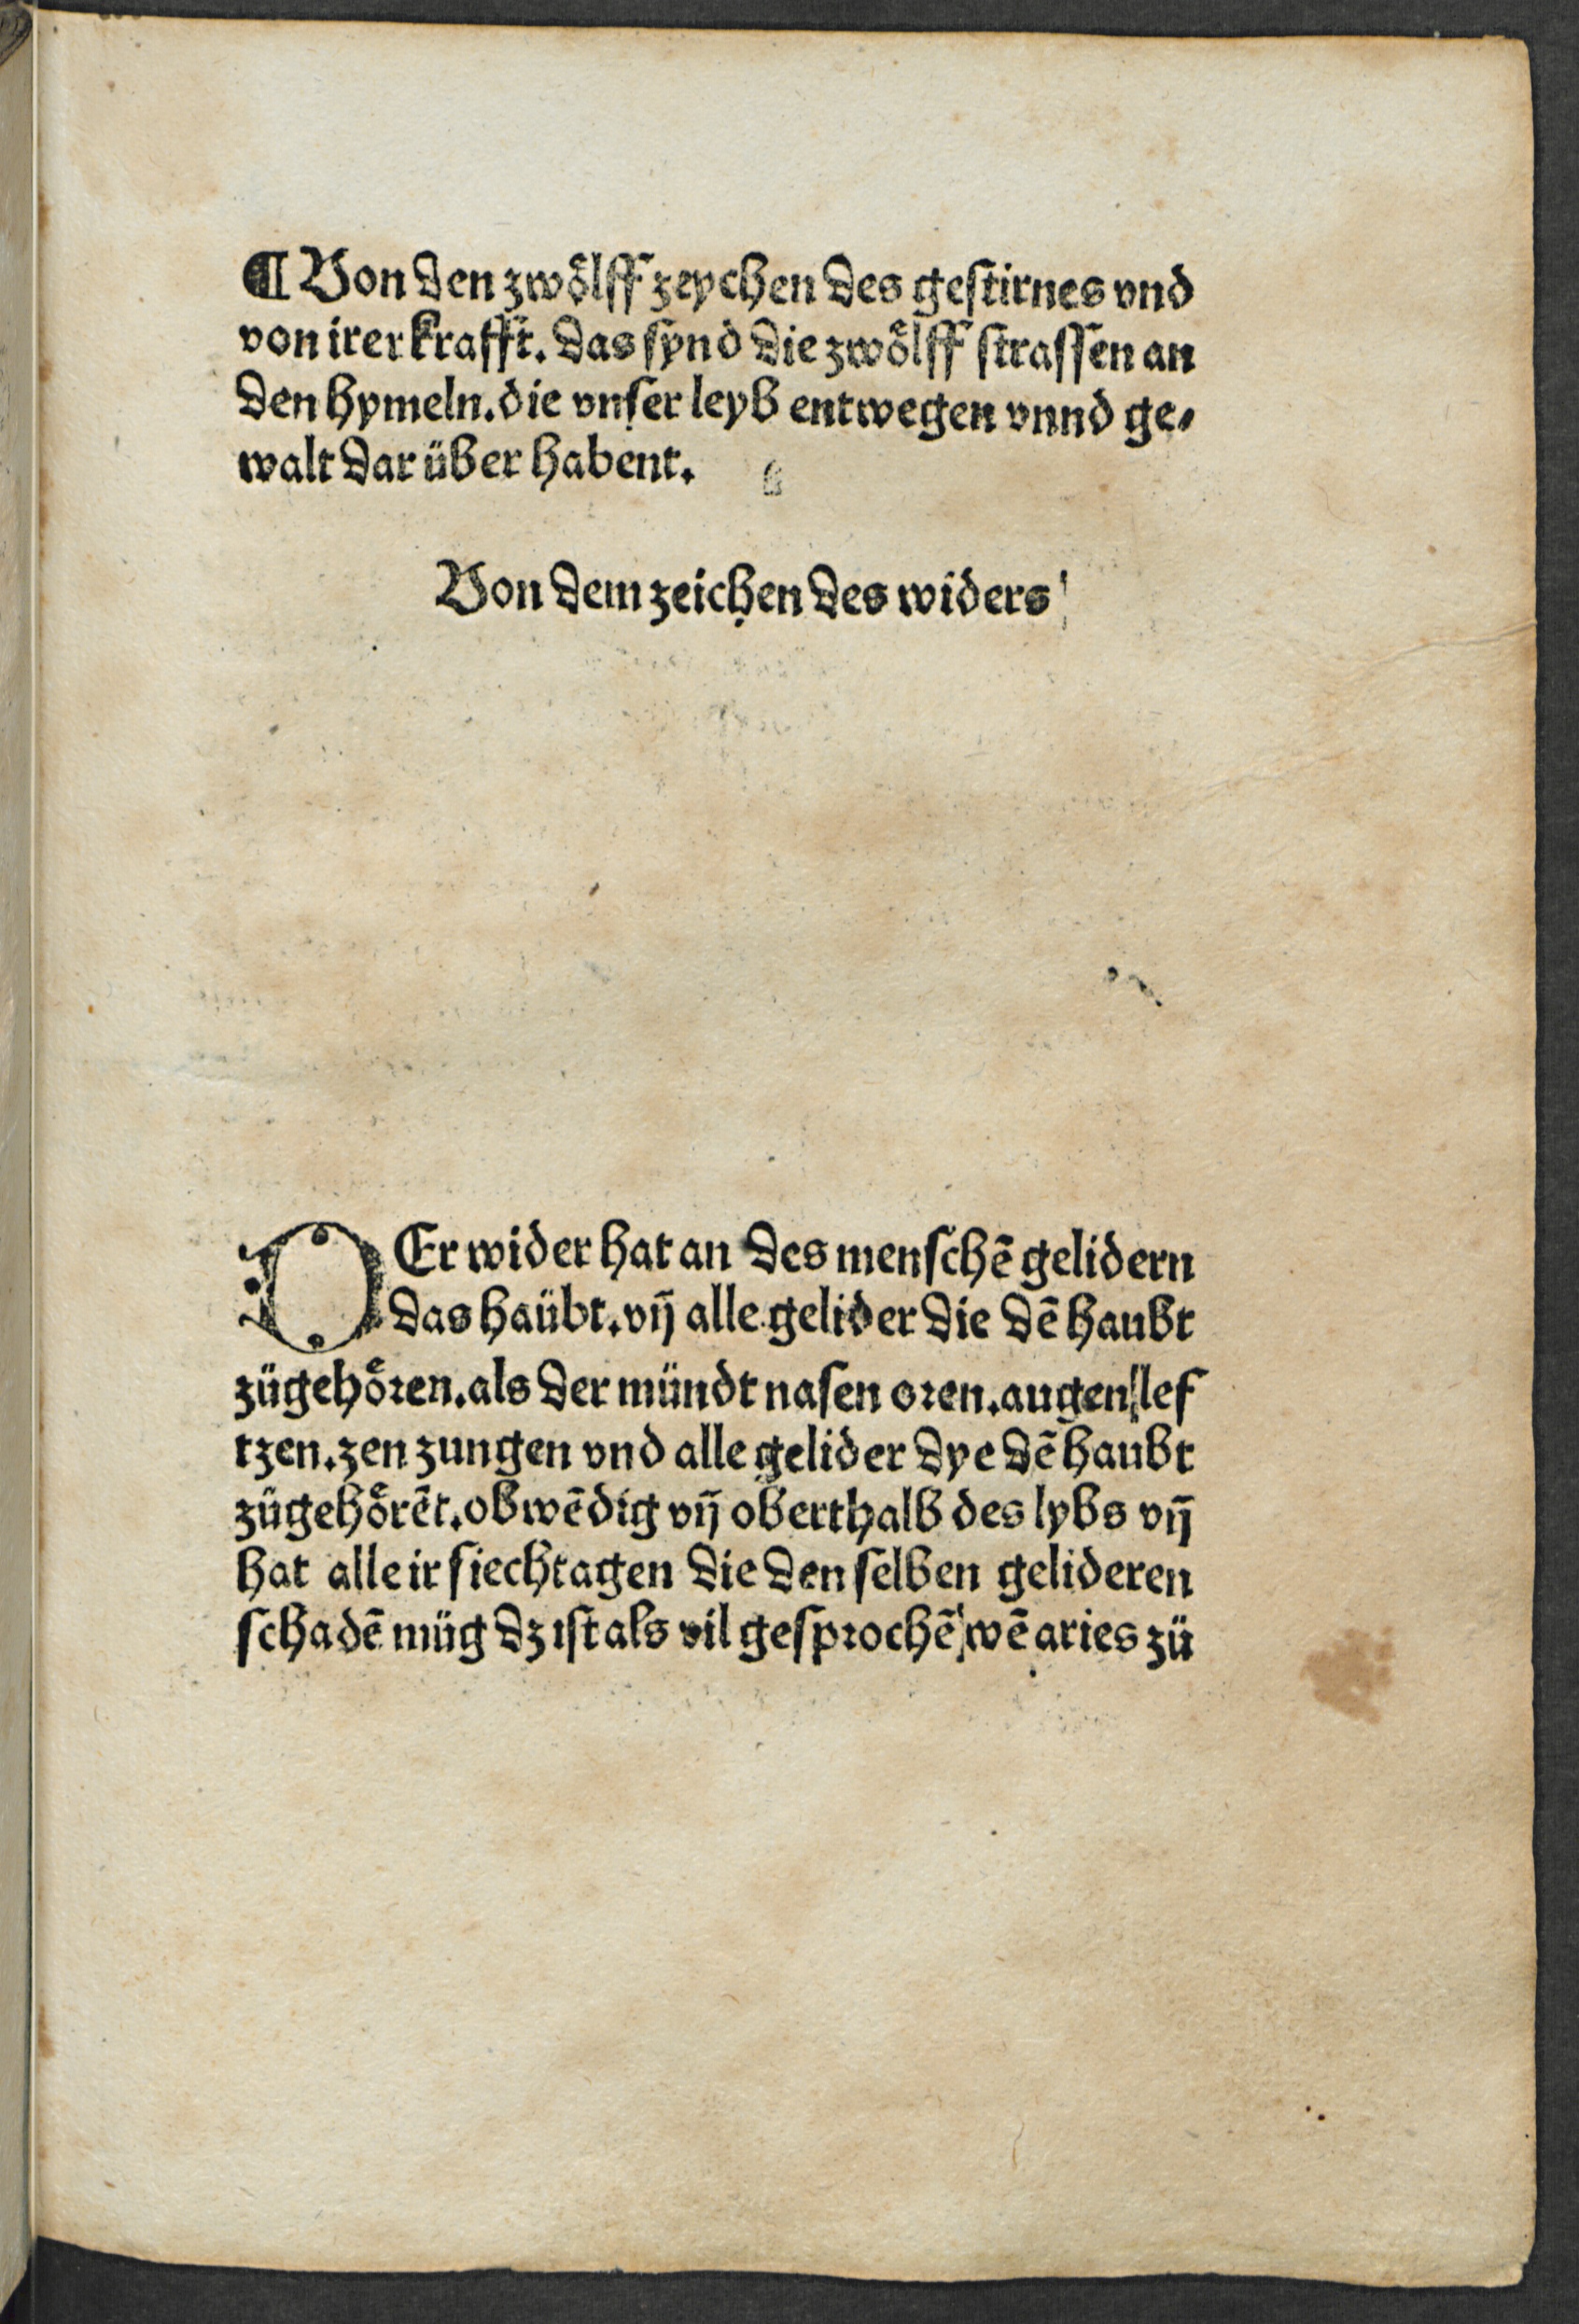 ¶ Von den zwoͤlff zeychen des gestirnes vnd
von irer krafft. das synd die zwoͤlff strassen an
den hymeln. die vnser leyb entwegen vnnd ge⸗
walt dar über habent.
Von dem zeichen des widers
DEr wider hat an des menschē gelidern
das haübt. vn̄ alle gelider die dē haubt
zügehoͤren. als der mündt nasen oren. augen lef
tzen. zen zungen vnd alle gelider dye dē haubt
zügehoͤrēt. obwēdig vn̄ oberthalb des lybs vn̄
hat alle ir siechtagen die den selben gelideren
schadē müg dz ist als vil gesprochē wē aries zü